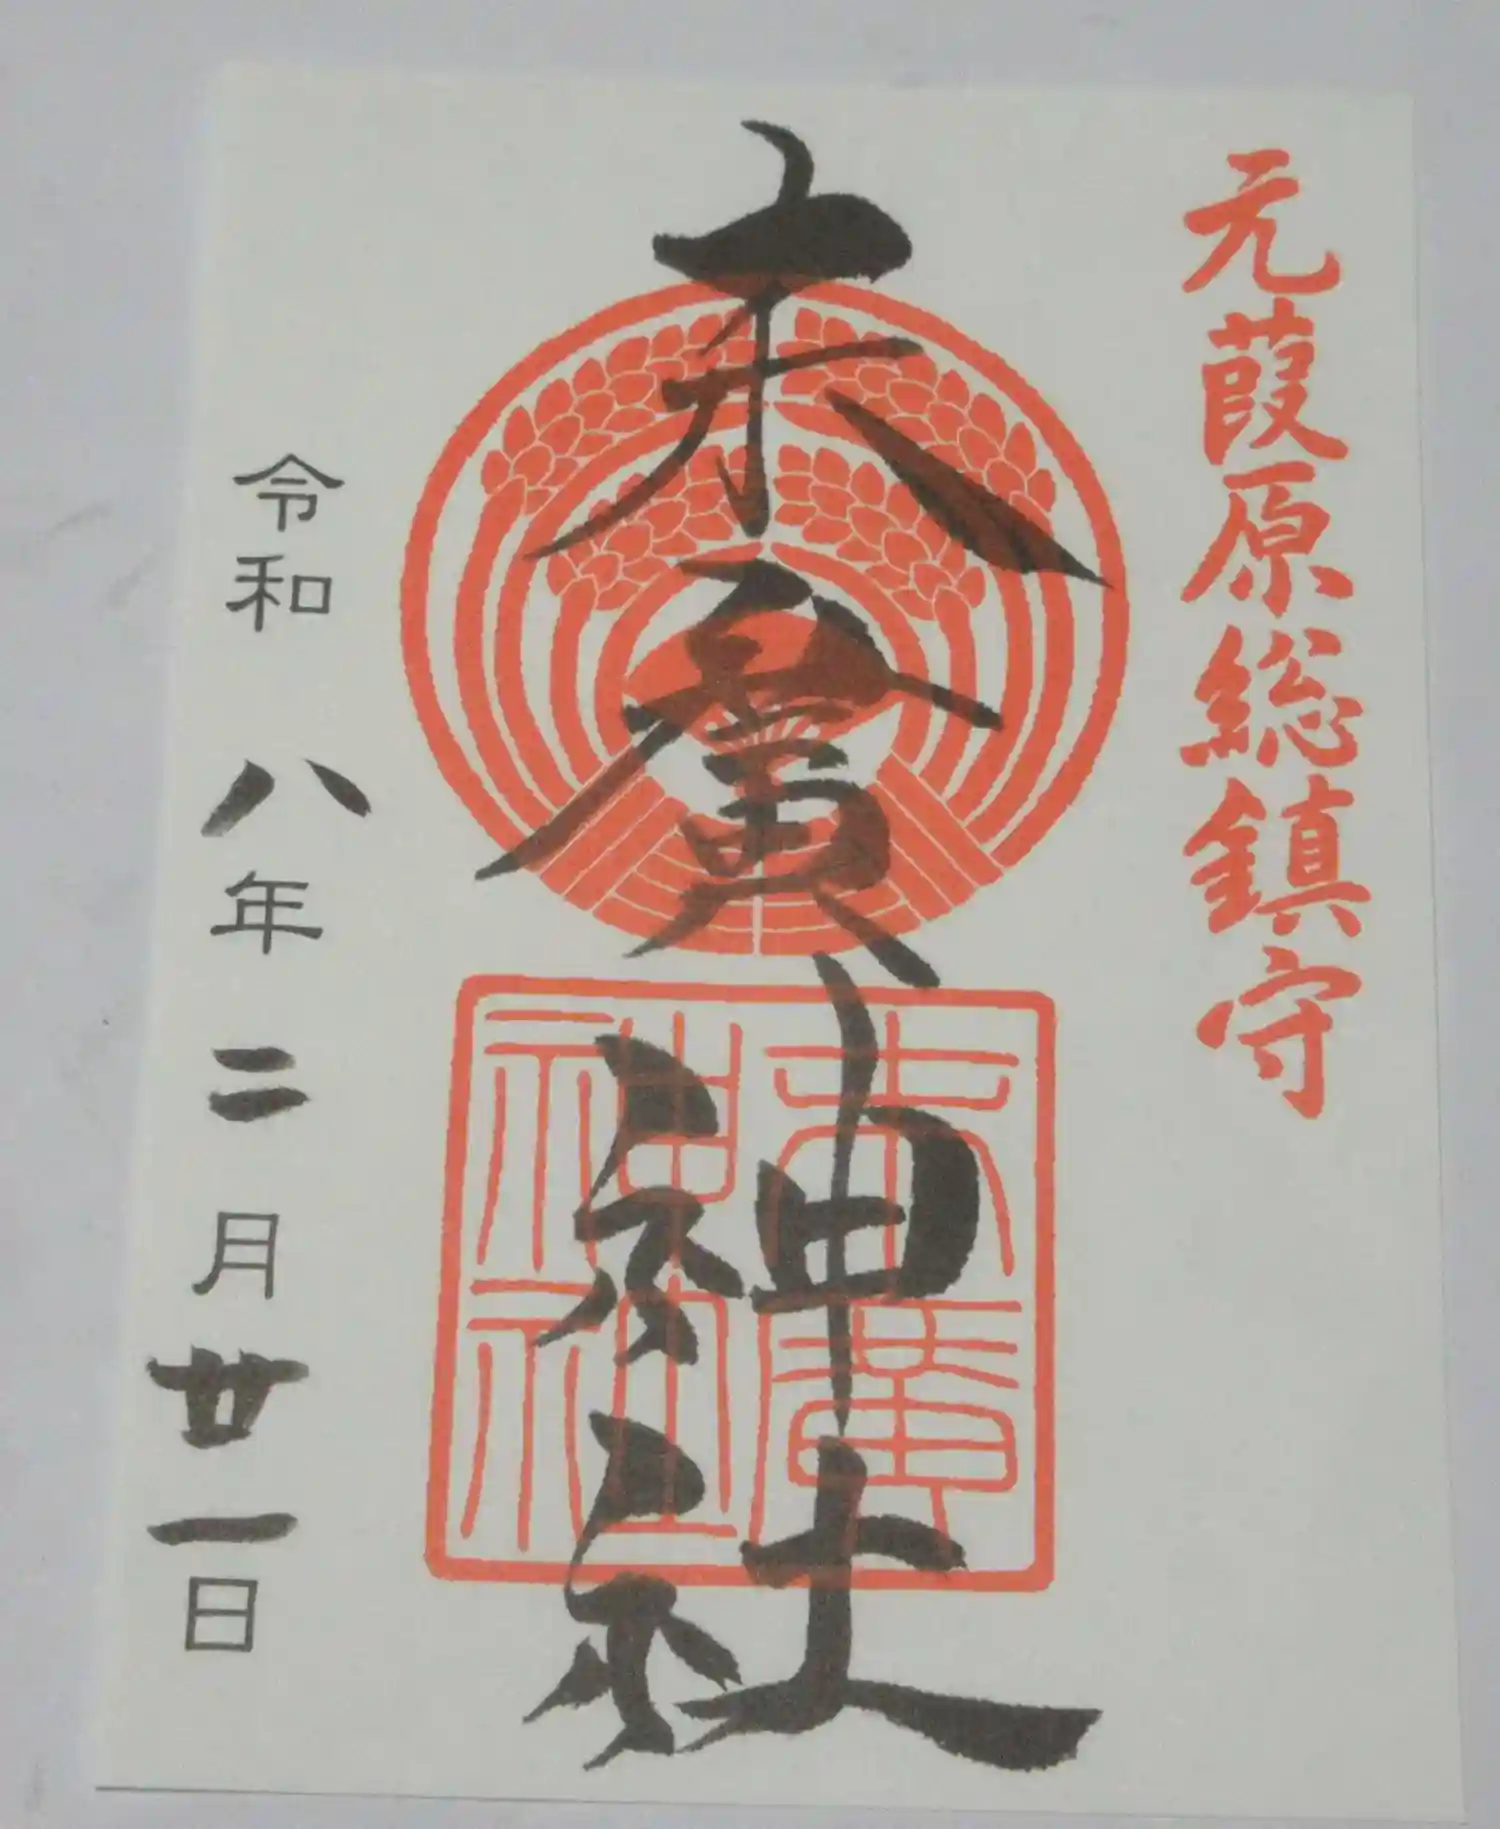 元葭原総鎮守
末廣神社
末廣
神社
令和八年二月廿一日